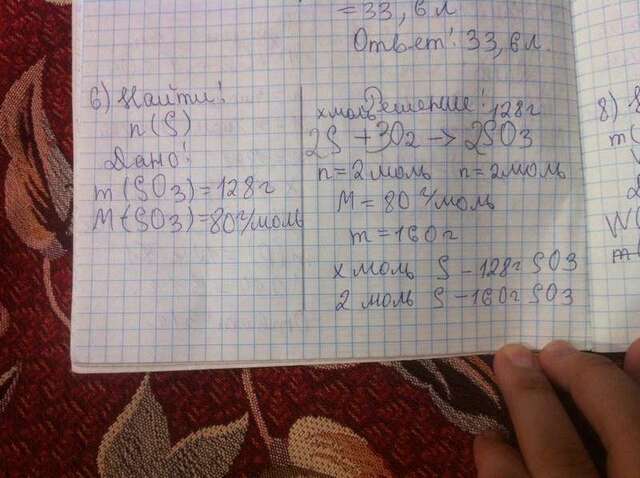 =33,6 л.
Ответ: 33,6 л.
б) Найти:
n(S)
Дано:
m(SO3)=128г
M(SO3)=80г/моль
Решение:
x моль 128г
2S + 3O2 → 2SO3
n=2моль n=2моль
M=80г/моль
m=160г
x моль S - 128г SO3
2 моль S - 160г SO3
8)